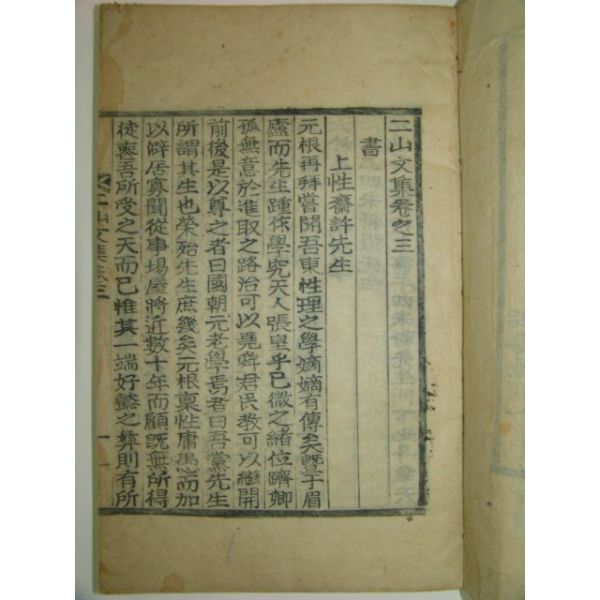 二山文集卷之三
書
上性齋許先生
元根再拜嘗聞吾東性理之學嫡嫡有傳矣曁于眉
廬而先生踵作學究天人張皇乎已微之緖位躋卿
孤無意於進取之路治可以堯舜君民敎可以繼開
前後是以尊之者曰國朝元老學焉者曰吾黨先生
所謂其生也榮殆先生庶幾矣元根稟性庸愚而加
以僻居寡聞從事場屋將近數十年而顧旣無所得
徒喪吾所受之天而已惟其一端好懿之彛則有所
二山文集卷三
一